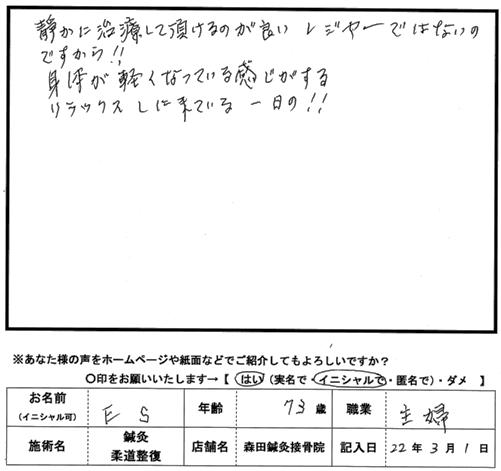 静かに治療して頂けるのが良い レジャーではないの
ですから!!
身体が軽くなっている感じがする
リラックスしに来ている 一日の!!
※あなた様の声をホームページや紙面などでご紹介してもよろしいですか?
〇印をお願いいたします→【 はい (実名で・イニシャルで・匿名で)・ダメ 】
お名前 (イニシャル可) E S 年齢 73 歳 職業 主婦
施術名 鍼灸 柔道整復 店舗名 森田鍼灸接骨院 記入日 22 年 3 月 1 日